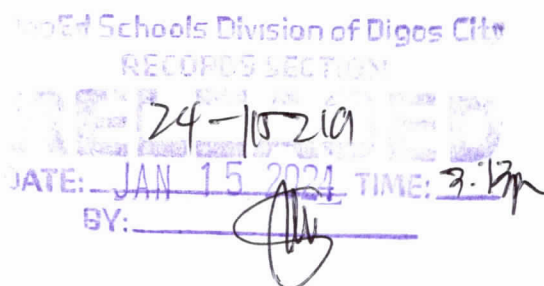 DepEd Schools Division of Digos City
RECORDS SECTION
RELEASED
DATE: JAN 15 2024 TIME:
BY: